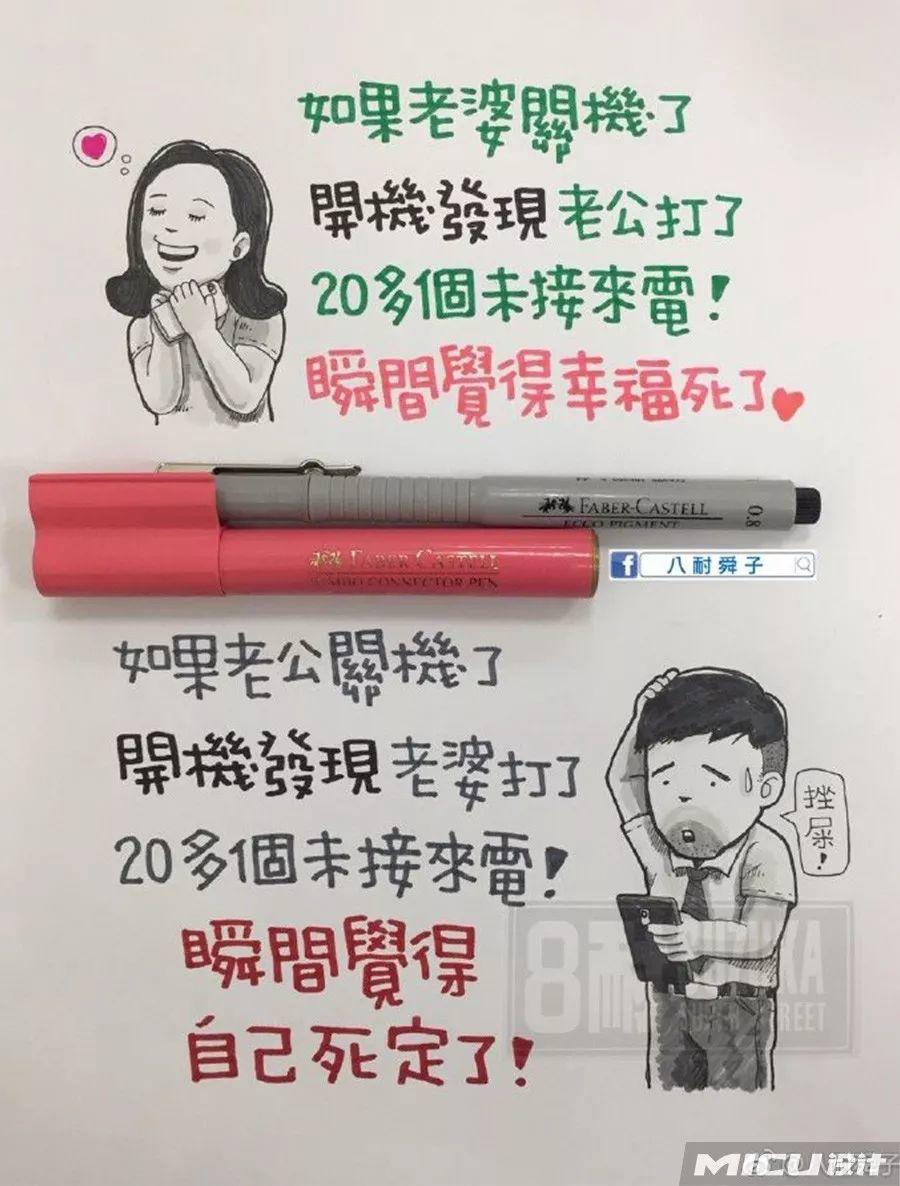 如果老婆關機了
開機發現老公打了
20多個未接來電!
瞬間覺得幸福死了
FABER-CASTELL
ECCO PIGMENT
0.8
FABER-CASTELL
JUMBO CONNECTOR PEN
f 八耐舜子
如果老公關機了
開機發現老婆打了
20多個未接來電!
挫屎!
瞬間覺得
自己死定了!
8耐
STREET
MICU设计